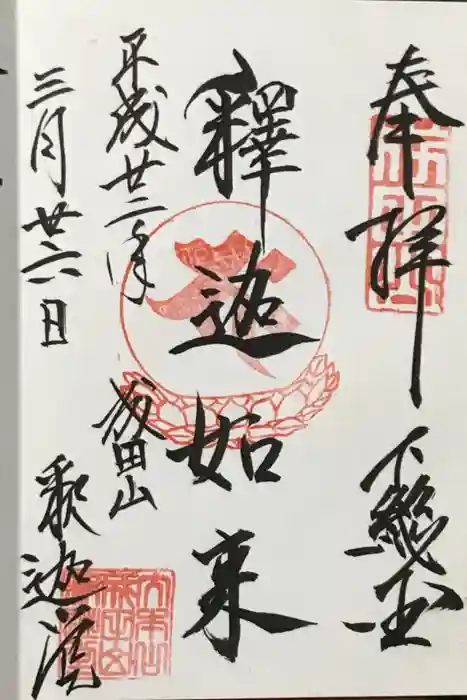 奉拝 下総国
釋迦如来
平成廿二年 成田山
三月廿六日 釈迦堂